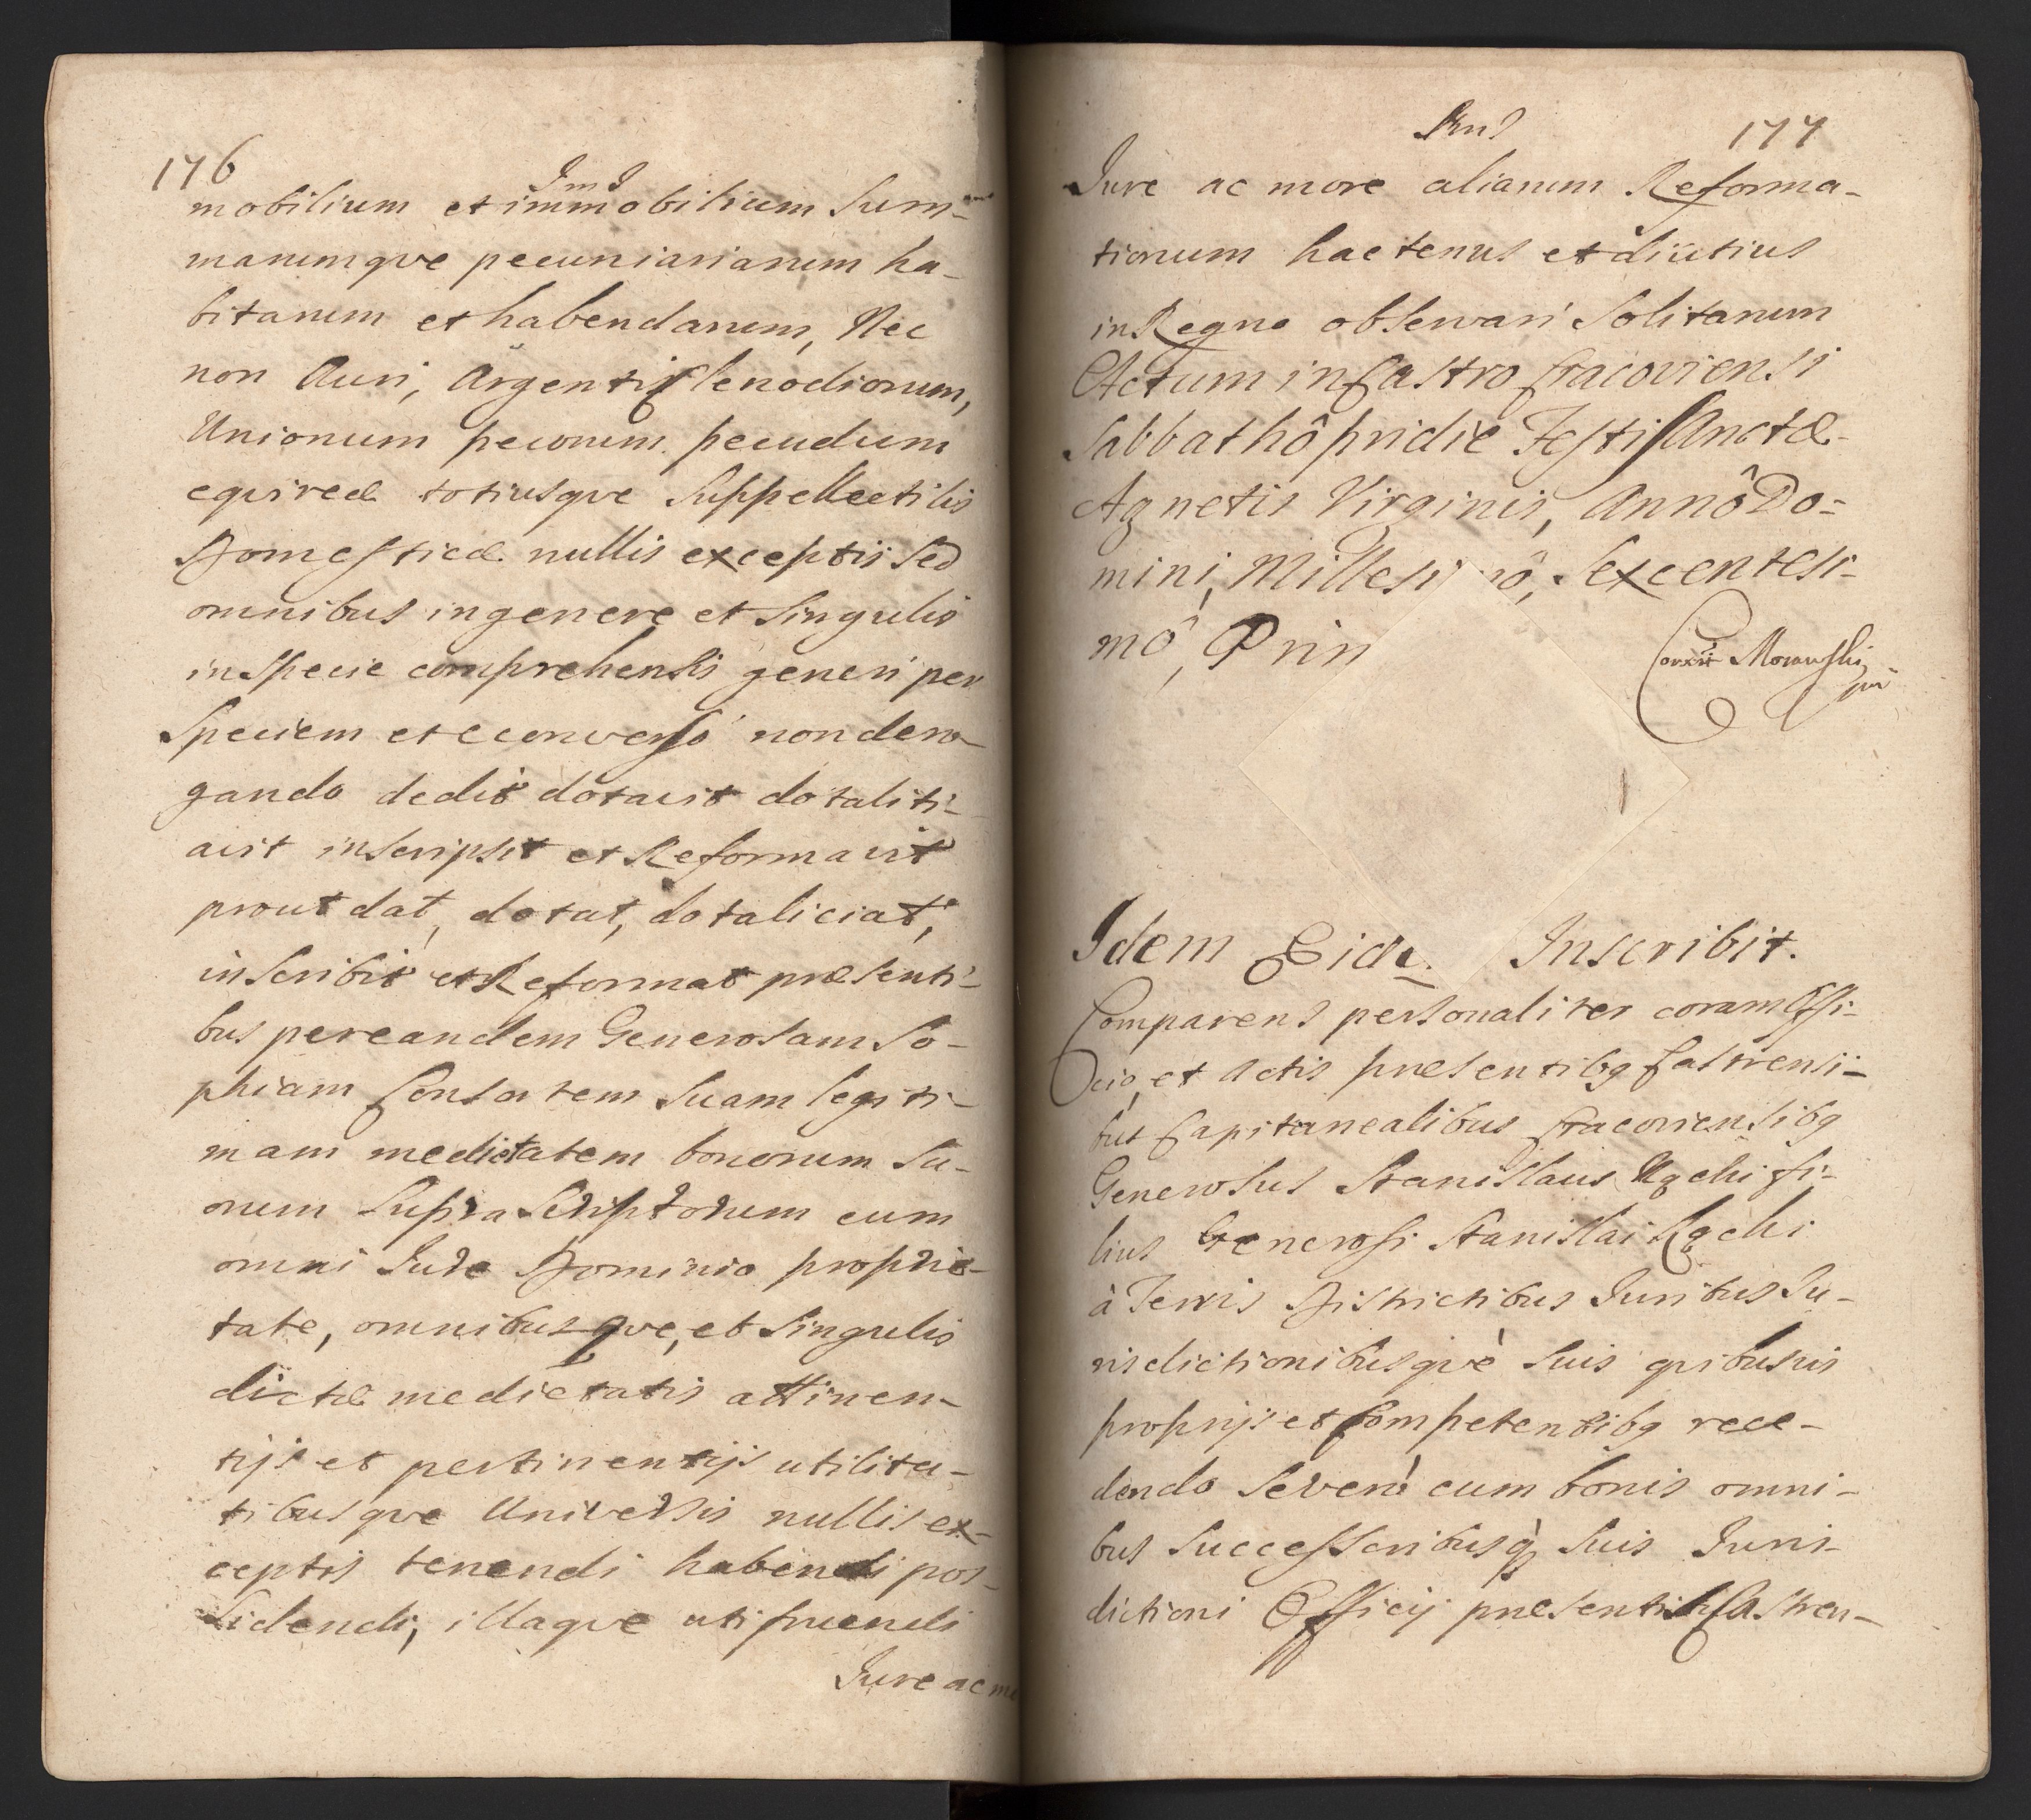 176
mobilium et immobilium Sum-
marumqve pecuniariarum ha-
bitarum et habendarum, Nec
non Auri, Argenti, Clenodiorum,
Unionum pecorum pecudum
eqvireæ totiusqve Suppellectilis
Domesticæ nullis exceptis Sed
omnibus in genere et Singulis
in Specie comprehensis generi per
Speciem et econverso non dero-
gando dedit dotavit dotaliti-
avit inscripsit et Reformavit
prout dat, dotat, dotaliciat,
inscribit et Reformat præsenti-
bus per eandem Generosam So-
phiam Consortem Suam legiti-
mam medietatem bonorum Su-
orum Supra Scriptorum cum
omni Jure Dominio proprie-
tate, omnibusqve, et Singulis
dictæ medietatis attinen-
tijs et pertinentijs utilita-
tibusqve Universis nullis ex-
ceptis tenendi habendi pos-
Sidendi, illaqve utifruendi
Jure ac mo
177
Jure ac more aliarum Reforma-
tionum hactenus et diutius
in Regno observari Solitarum
Actum in Castro Cracoviensi
Sabbathô pridie Festi Sanctæ
Agnetis Virginis, Annô Do=
mini, Millesi mô, Sexcentesi-
mô, Prim
Correxit Morawski
mp
Idem Eide. Inscribit.
Comparens personaliter coram Offi-
cio, et Actis præsentibg Castrensi-
bus Capitanealibus Cracoviensibg
Generosus Stanislaus Rąchi fi-
lius Generosi Stanislai Rąchi
à Terris Districtibus Juribus Ju-
risdictionibusqvè Suis qvibusvis
proprijs et Competentibg rece-
dendo Severè cum bonis omni-
bus Successoribusq; Suis Juris-
dictioni Officij præsentis Castren-